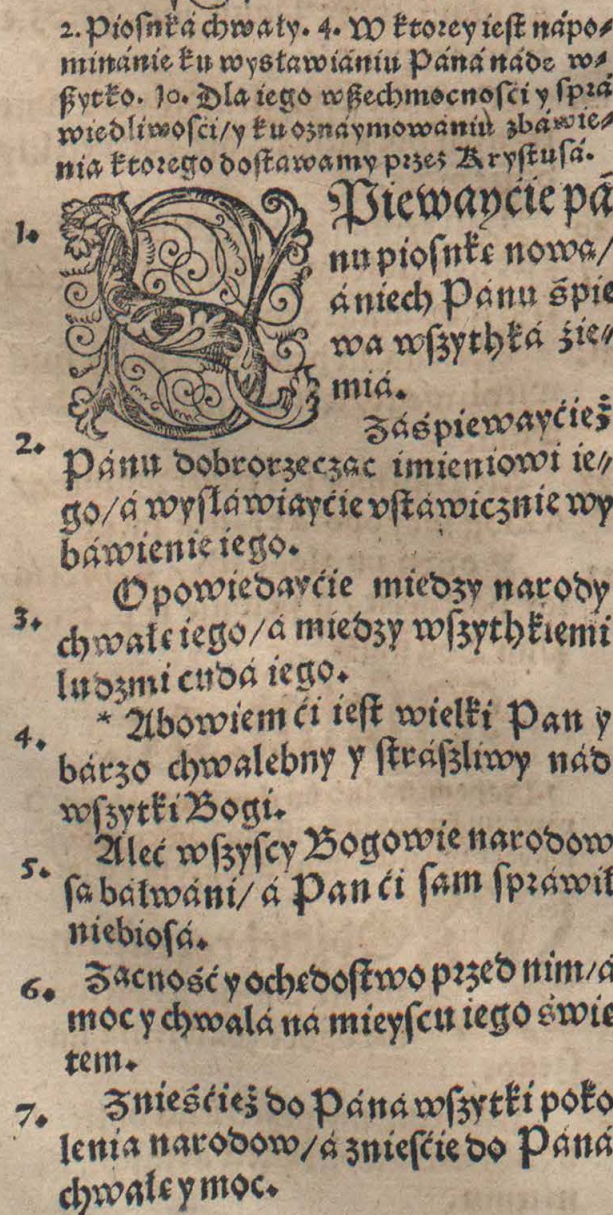 2. Piosnká chwały. 4. W ktorey iest nápo⸗
minánie ku wysławiániu Páná náde w⸗
ßytko. 10. Dla iego wßechmocnosći y sprá
wiedliwosći/ y ku oznáymowániu zbáwie⸗
nia ktorego dostawamy przez Krystusá.
1. SPiewayćie pá
nu piosnkę nową/
á niech Pánu śpie
wa wszythká źie⸗
miá.
2. Záśpiewayćież
Pánu dobrorzecząc imieniowi ie⸗
go/ á wysławiayćie vstáwicznie wy
báwienie iego.
3. Opowiedayćie miedzy narody
chwałę iego/ á miedzy wszythkiemi
ludzmi cudá iego.
4. * Abowiem ći iest wielki Pan y
bárzo chwalebny y strászliwy nád
wszytki Bogi.
5. Aleć wszyscy Bogowie narodow
są báłwáni/ á Pan ći sam spráwił
niebiosá.
6. Zacność y ochędostwo przed nim/ á
moc y chwałá ná mieyscu iego świę
tem.
7. Znieśćież do Páná wszytki poko
lenia narodow/ á znieśćie do Páná
chwałę y moc.